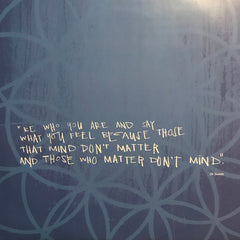 "BE WHO YOU ARE AND SAY
WHAT YOU FEEL BECAUSE THOSE
THAT MIND DON'T MATTER
AND THOSE WHO MATTER DON'T MIND."